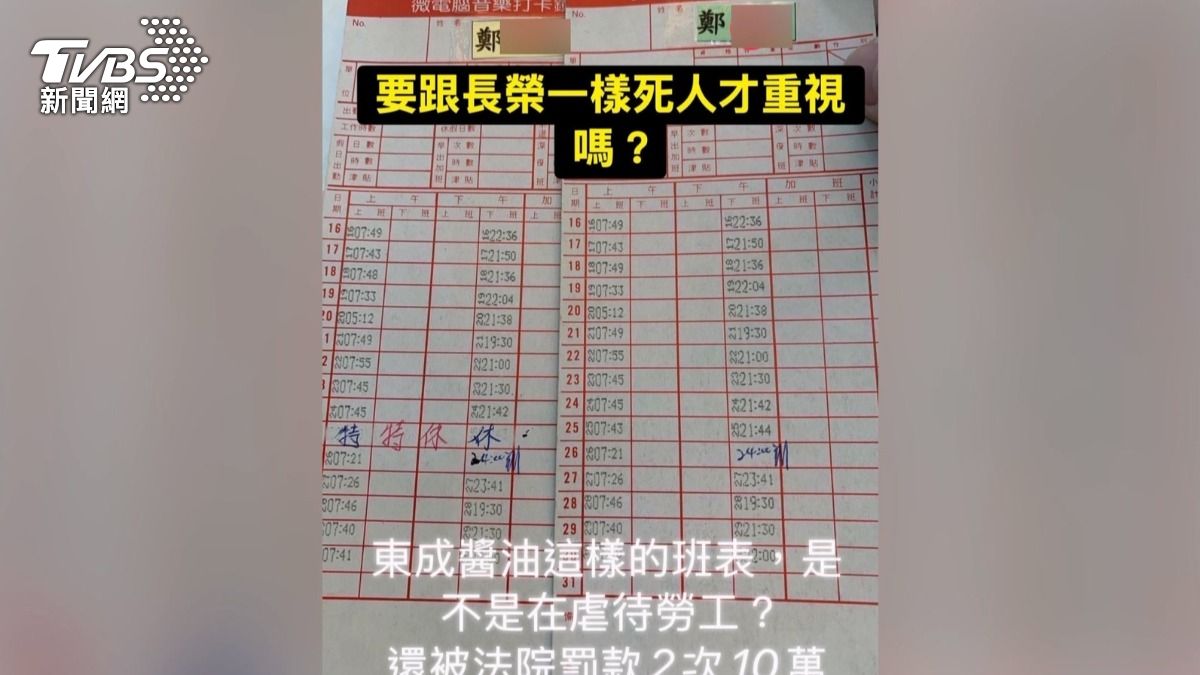 TVBS
新聞網
微電腦音樂打卡鐘
No. 姓名 鄭
No. 姓名 鄭
要跟長榮一樣死人才重視
嗎？
工作時數 休假日數
日數 次數 次數
時數 時數 時數
津貼 津貼 津貼 津貼
日期 上午 下午 加
上班 下班 上班 下班 上班
16 07:49 22:36
17 07:43 21:50
18 07:48 21:36
19 07:33 22:04
20 05:12 21:38
1 07:49 19:30
2 07:55 21:00
07:45 21:30
07:45 21:42
特 特 休 休
07:21 24:00
07:26 23:41
07:46 19:30
07:40 21:30
07:41
日期 上午 下午 加班 小計
上班 下班 上班 下班 上班 下班
16 07:49 22:36
17 07:43 21:50
18 07:49 21:36
19 07:33 22:04
20 05:12 21:38
21 07:49 19:30
22 07:55 21:00
23 07:45 21:30
24 07:45 21:42
25 07:43 21:44
26 07:21 24:00
27 07:26 23:41
28 07:46 19:30
29 07:40 21:30
31
東成醬油這樣的班表，是
不是在虐待勞工？
還被法院罰款2次10萬